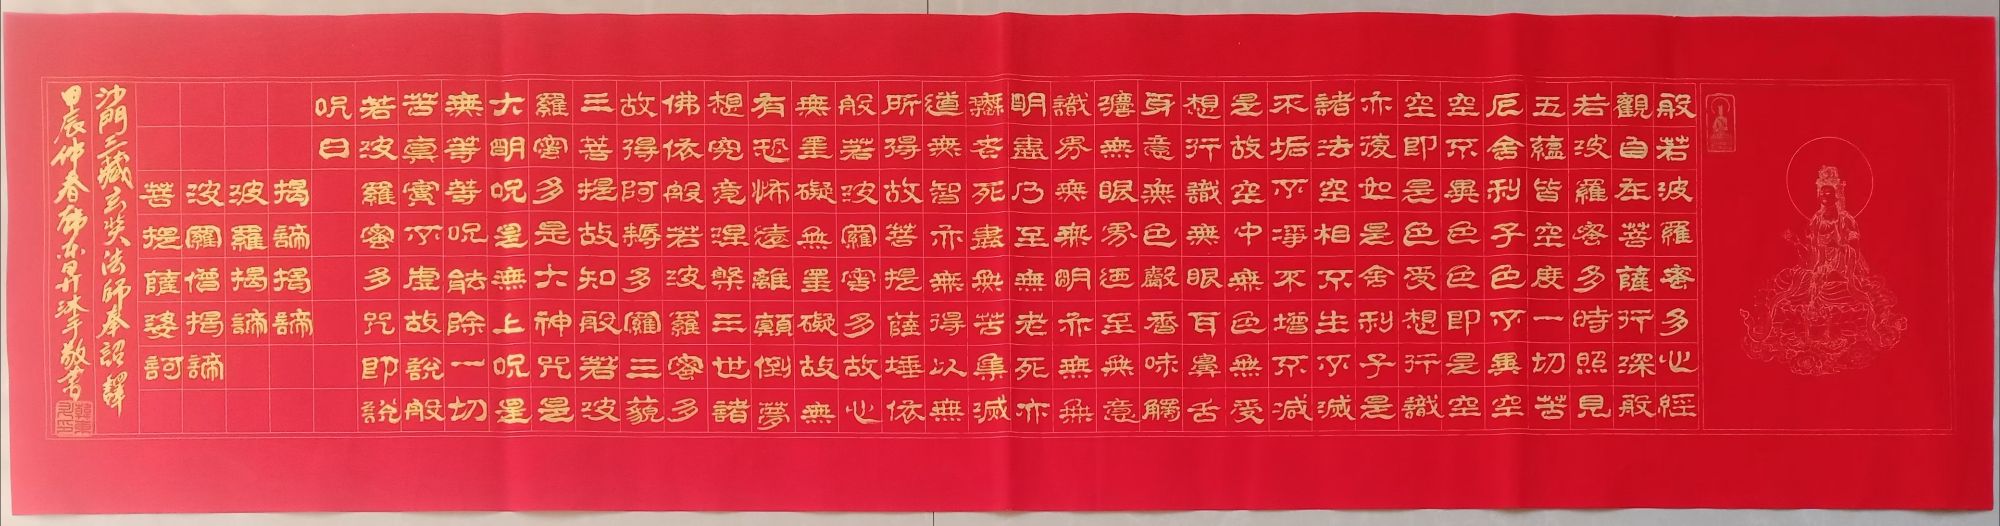 般若波羅蜜多心經
觀自在菩薩行深般
若波羅蜜多時照見
五蘊皆空度一切苦
厄舍利子色不異空
空不異色色即是空
空即是色受想行識
亦復如是舍利子是
諸法空相不生不滅
不垢不凈不增不減
是故空中無色無受
想行識無眼耳鼻舌
身意無色聲香味觸
灋無眼界迺至無意
識界無無明亦無無
明盡乃至無老死亦
無老死盡無苦集滅
道無智亦無得以無
所得故菩提薩埵依
般若波羅蜜多故心
無罣礙無罣礙故無
有恐怖遠離顛倒夢
想究竟涅槃三世諸
佛依般若波羅蜜多
故得阿耨多羅三藐
三菩提故知般若波
羅蜜多是大神咒是
大明呪是無上呪是
無等等呪能除一切
苦真實不虛故說般
若波羅蜜多咒即說
呪曰
揭諦揭諦
波羅揭諦
波羅僧揭諦
菩提薩婆訶
沙門三藏玄奘法師奉詔譯
甲辰仲春韩东昇沐手敬書